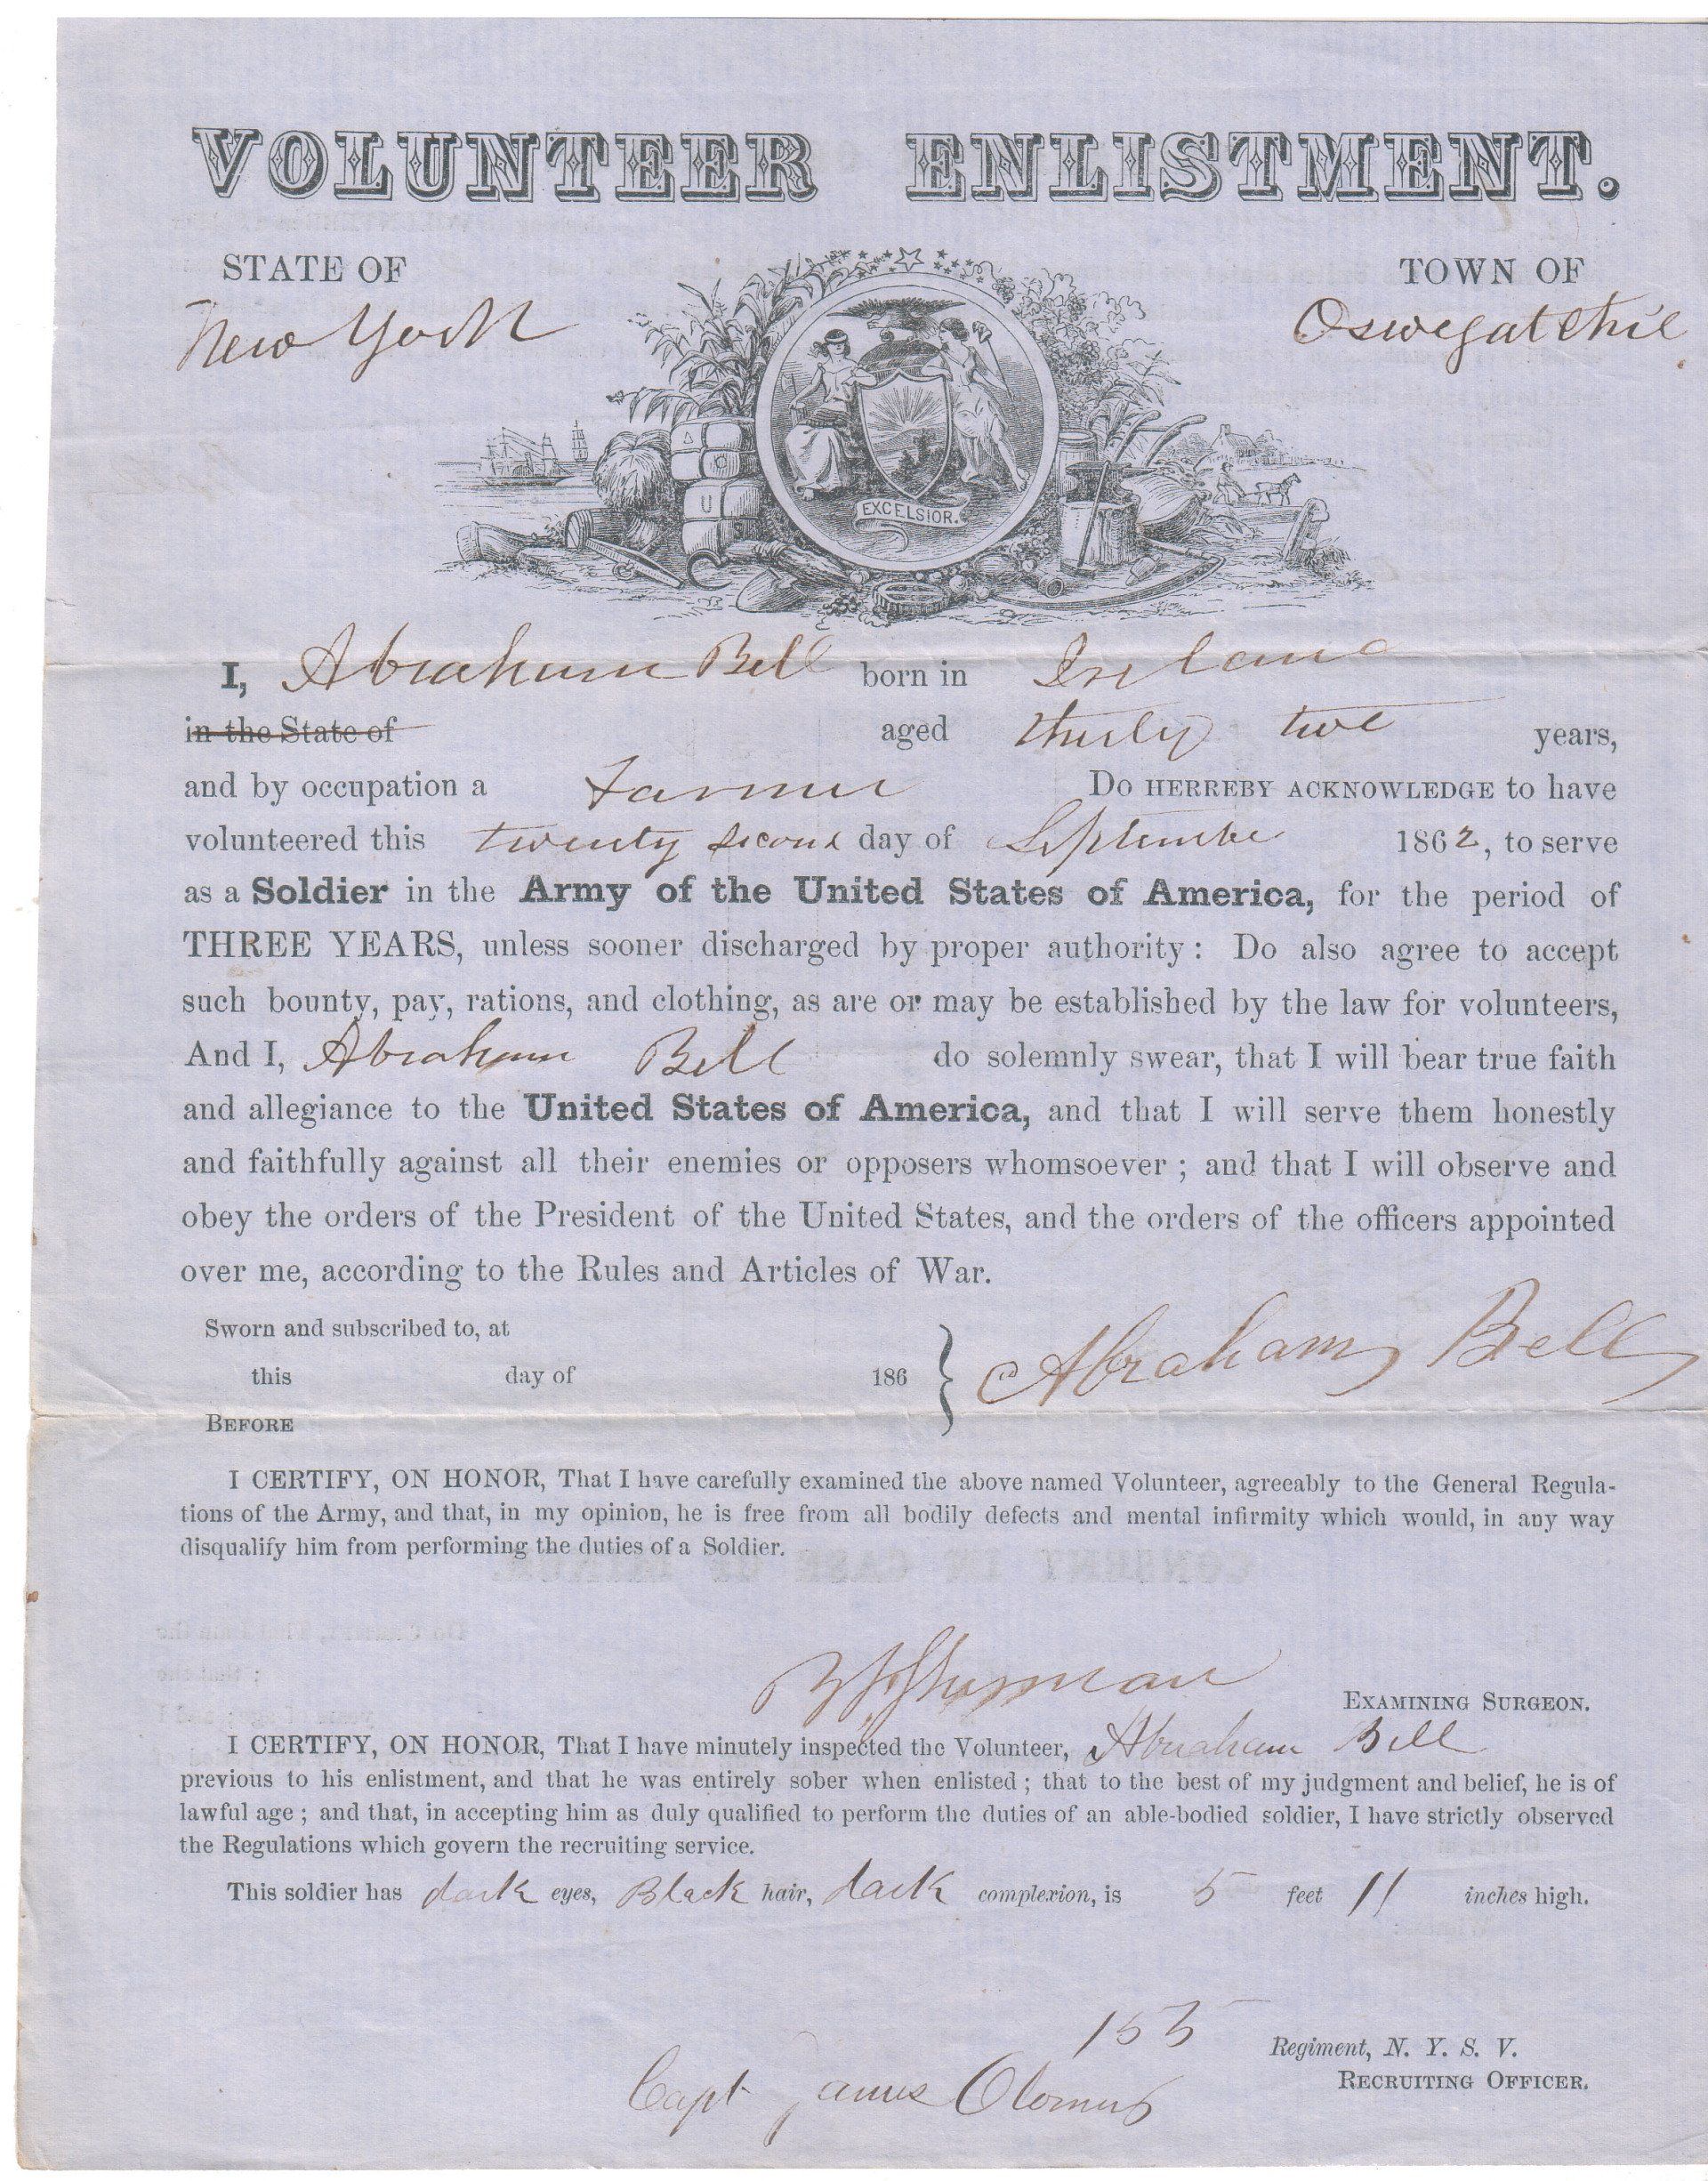 VOLUNTEER ENLISTMENT.
STATE OF
TOWN OF
New York
Oswegatchie
EXCELSIOR.
I, Abraham Bell born in Ireland
in the State of aged thirty two years,
and by occupation a Farmer Do HERREBY ACKNOWLEDGE to have
volunteered this twenty second day of September 1862, to serve
as a Soldier in the Army of the United States of America, for the period of
THREE YEARS, unless sooner discharged by proper authority: Do also agree to accept
such bounty, pay, rations, and clothing, as are or may be established by the law for volunteers,
And I, Abraham Bell do solemnly swear, that I will bear true faith
and allegiance to the United States of America, and that I will serve them honestly
and faithfully against all their enemies or opposers whomsoever; and that I will observe and
obey the orders of the President of the United States, and the orders of the officers appointed
over me, according to the Rules and Articles of War.
Sworn and subscribed to, at
this day of 186
Abraham Bell
BEFORE
I CERTIFY, ON HONOR, That I have carefully examined the above named Volunteer, agreeably to the General Regula-
tions of the Army, and that, in my opinion, he is free from all bodily defects and mental infirmity which would, in any way
disqualify him from performing the duties of a Soldier.
EXAMINING SURGEON.
I CERTIFY, ON HONOR, That I have minutely inspected the Volunteer, Abraham Bell
previous to his enlistment, and that he was entirely sober when enlisted; that to the best of my judgment and belief, he is of
lawful age; and that, in accepting him as duly qualified to perform the duties of an able-bodied soldier, I have strictly observed
the Regulations which govern the recruiting service.
This soldier has dark eyes, Black hair, dark complexion, is 5 feet 11 inches high.
155 Regiment, N. Y. S. V.
Capt James
RECRUITING OFFICER.